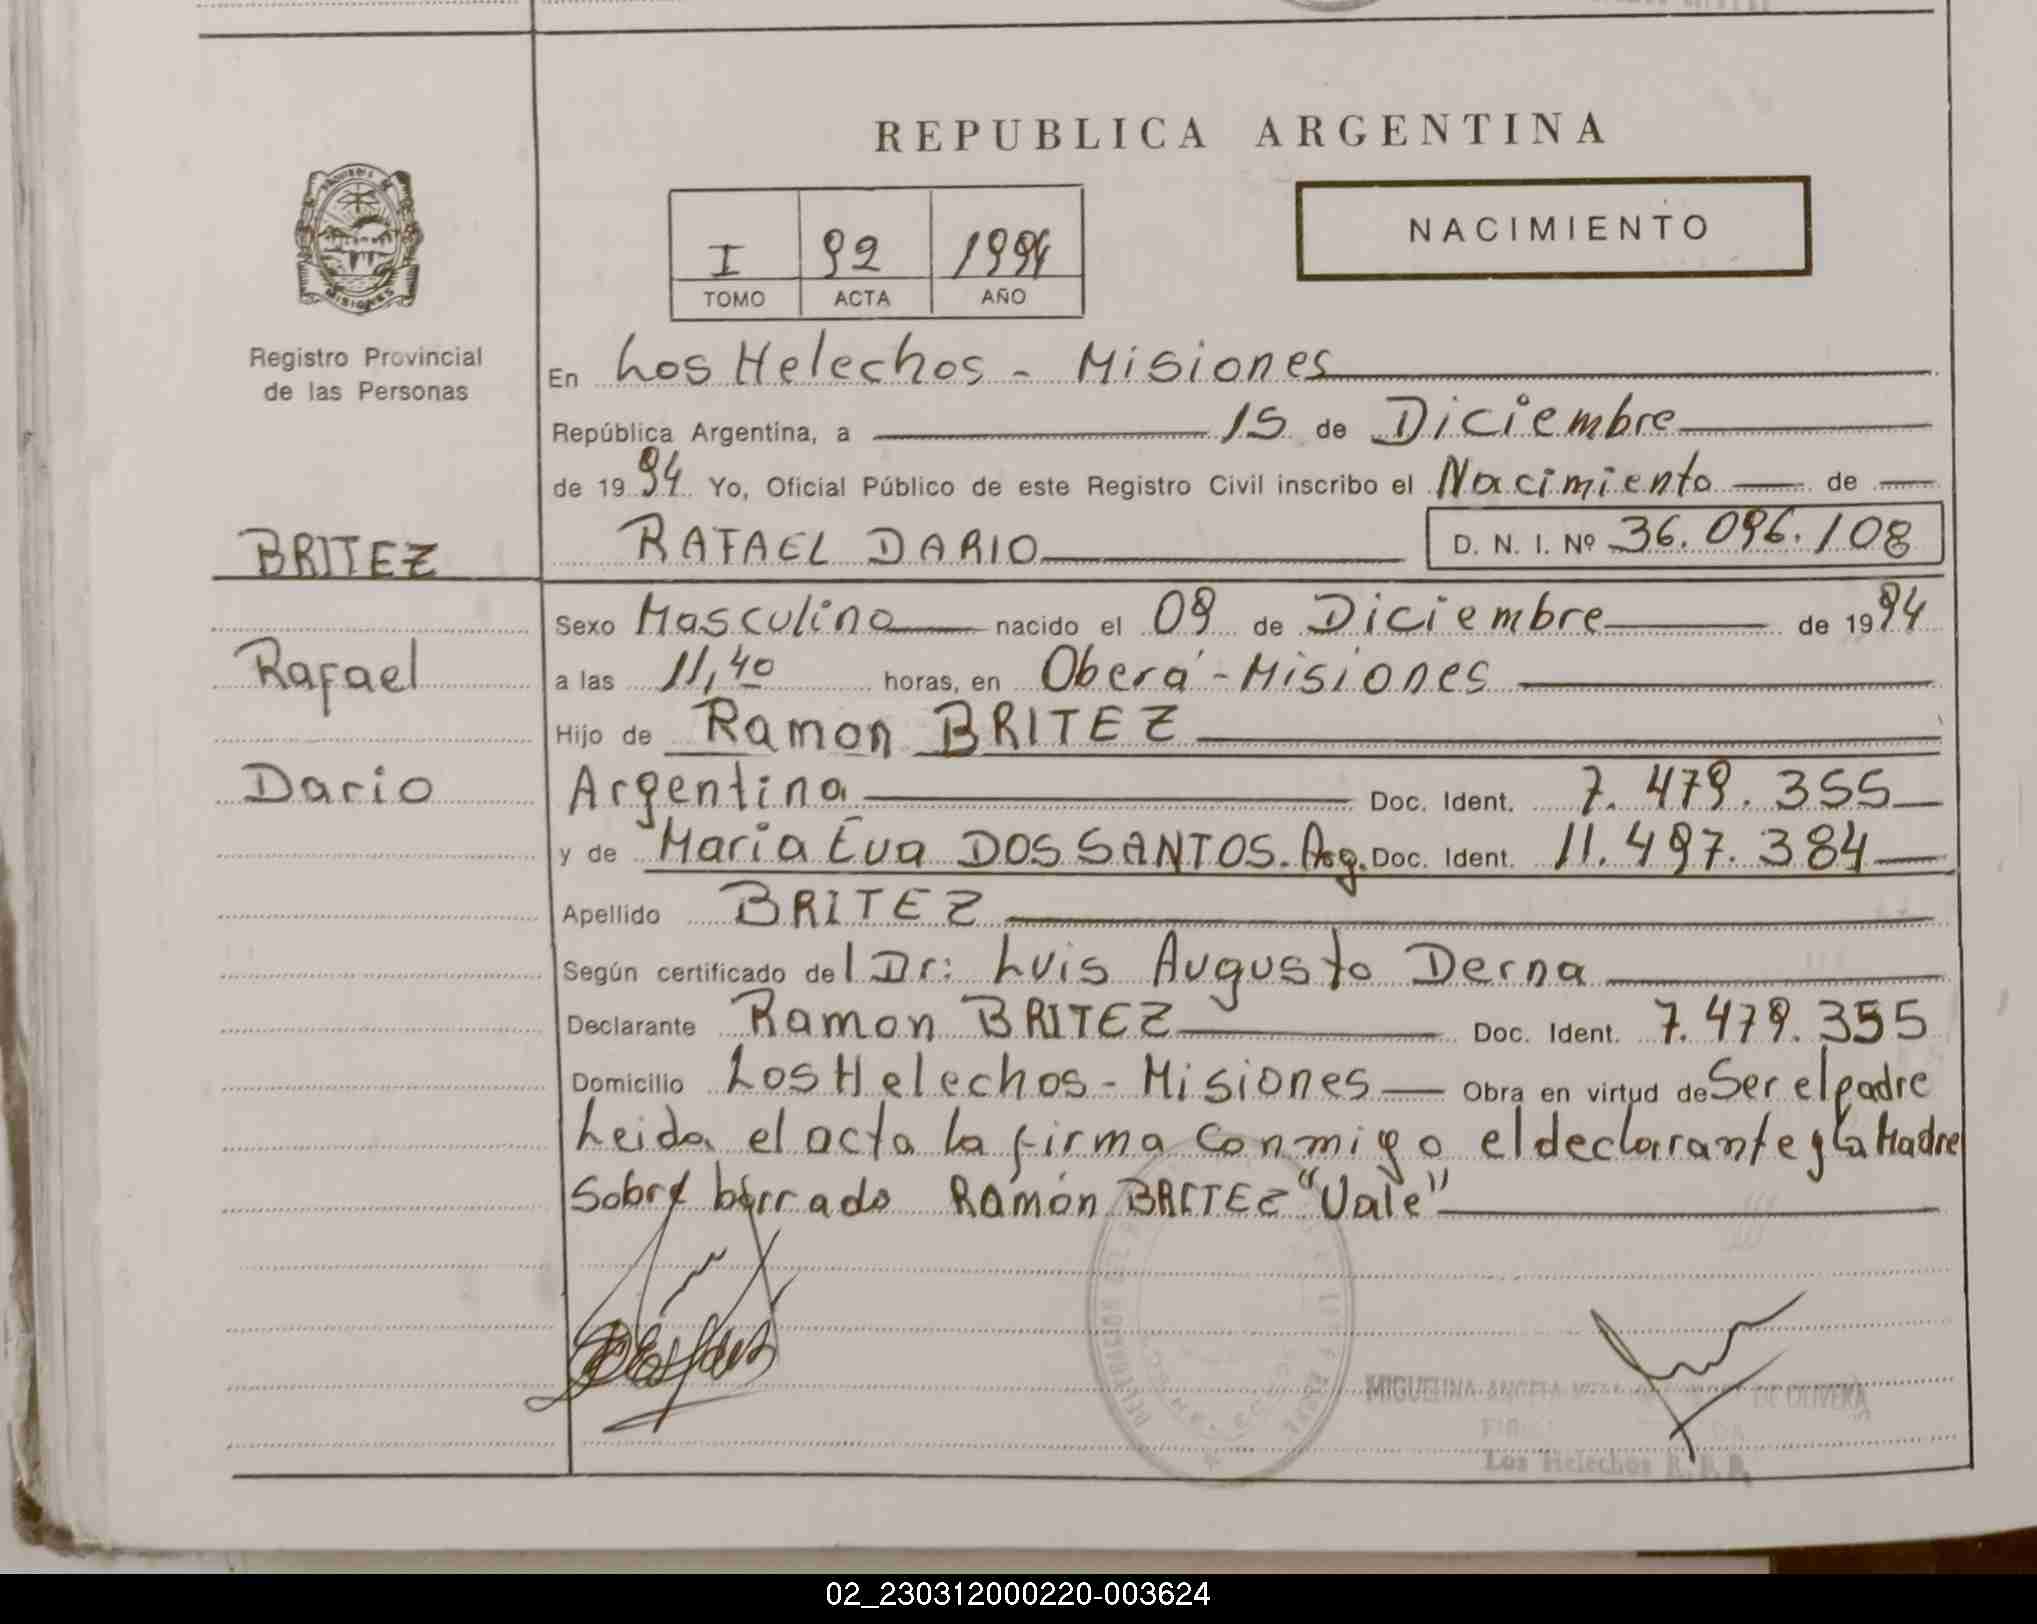 REPUBLICA ARGENTINA
NACIMIENTO
I 92 1994
TOMO ACTA AÑO
PROVINCIA DE
MISIONES
Registro Provincial
de las Personas
En Los Helechos - Misiones
República Argentina, a 15 de Diciembre
de 1994 Yo, Oficial Público de este Registro Civil inscribo el Nacimiento de
BRITEZ
RAFAEL DARIO D. N. I. Nº 36.096.108
Sexo Masculino nacido el 09 de Diciembre de 1994
Rafael
a las 11,40 horas, en Oberá - Misiones
Hijo de Ramon BRITEZ
Dario
Argentina Doc. Ident. 7.479.355
y de Maria Eva DOS SANTOS. Arg. Doc. Ident. 11.497.384
Apellido BRITEZ
Según certificado del Dr: Luis Augusto Derna
Declarante Ramon BRITEZ Doc. Ident. 7.479.355
Domicilio Los Helechos - Misiones Obra en virtud de Ser el padre
Leida el acta la firma conmigo el declarante y la Madre
Sobre borrado Ramón BRITEZ "Vale"
MIGUELINA ANGELA DE OLIVERA
Los Helechos R.P.P.
02_230312000220-003624